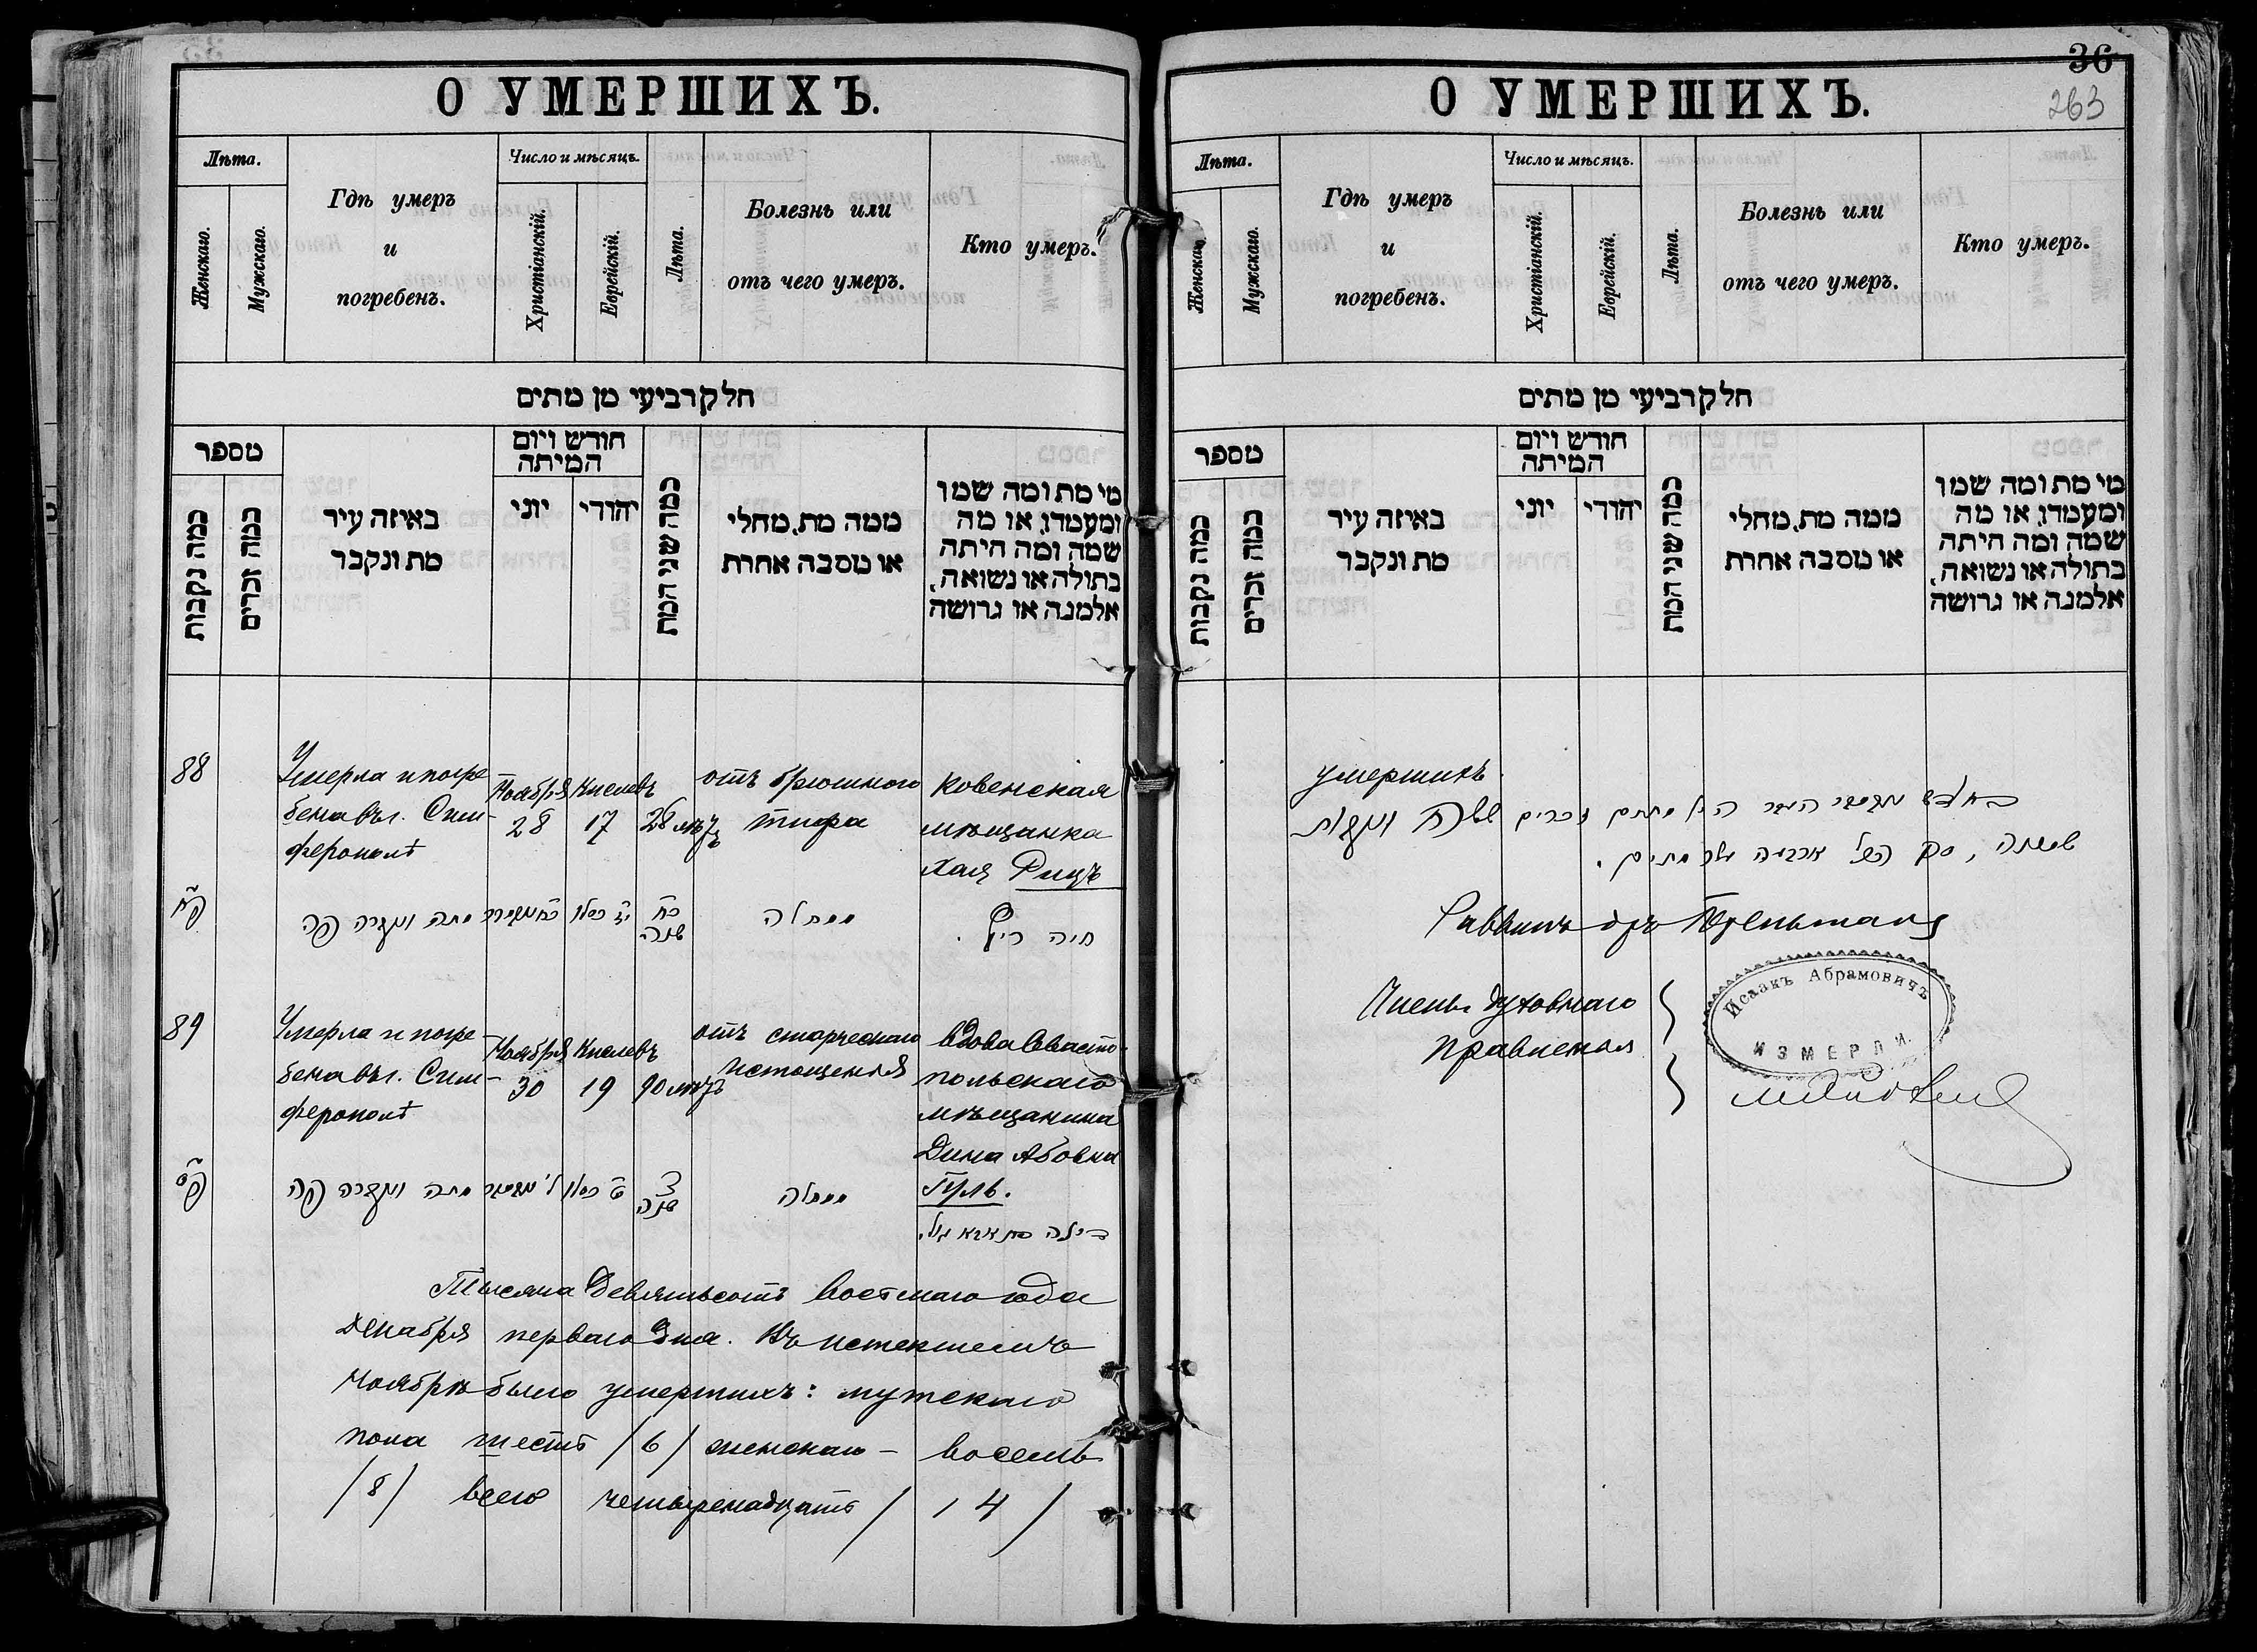 О УМЕРШИХЪ.
Лѣта.
Женскаго.
Мужскаго.
Гдѣ умеръ
и
погребенъ.
Число и мѣсяцъ.
Христіанскій.
Еврейскій.
Лѣта.
Болезнь или
отъ чего умеръ.
Кто умеръ.
חלק רביעי מן מתים
מספר
כמה נקבות
כמה זכרים
באיזה עיר
מת ונקבר
חודש ויום
המיתה
יוני
יהודי
כמה שני המת
ממה מת, מחלי
או מסבה אחרת
מי מת ומה שמו
ומעמדו, או מה
שמה ומה היתה
בתולה או נשואה,
אלמנה או גרושה
88
Умерла и погре-
бена въ г. Сим-
ферополѣ
Ноября
28
Кислевъ
17
28 лѣтъ
отъ брюшного
тифа
Ковенская
мѣщанка
Хая Рицъ
פח
מתה ונקברה פה
כח נאיעמבר
יז כסלו
כח
שנה
ממחלה
חיה ריץ.
89
Умерла и погре-
бена въ г. Сим-
ферополѣ
Ноября
30
Кислевъ
19
90 лѣтъ
отъ старческаго
истощенія
вдова Севасто-
польскаго
мѣщанина
Дина Абовна
Гуль.
פט
מתה ונקברה פה
ל'
יט כסלו
צ
שנה
ממחלה
Тысяча Девятьсотъ восьмаго года
Декабря перваго дня. Въ истекшемъ
Ноябрѣ было умершихъ: мужскаго
пола шесть /6/ женскаго - восемь
/8/ всего четырнадцать /14/
36
263
О УМЕРШИХЪ.
Лѣта.
Женскаго.
Мужскаго.
Гдѣ умеръ
и
погребенъ.
Число и мѣсяцъ.
Христіанскій.
Еврейскій.
Лѣта.
Болезнь или
отъ чего умеръ.
Кто умеръ.
חלק רביעי מן מתים
מספר
כמה נקבות
כמה זכרים
באיזה עיר
מת ונקבר
חודש ויום
המיתה
יוני
יהודי
כמה שני המת
ממה מת, מחלי
או מסבה אחרת
מי מת ומה שמו
ומעמדו, או מה
שמה ומה היתה
בתולה או נשואה,
אלמנה או גרושה
умершихъ.
זכרים ששה ונקבות
שמונה, סך הכל ארבעה עשר מתים.
Раввинъ
Члены Духовнаго
Правленія
Исаакъ Абрамовичъ
ИЗМЕРЛИ.